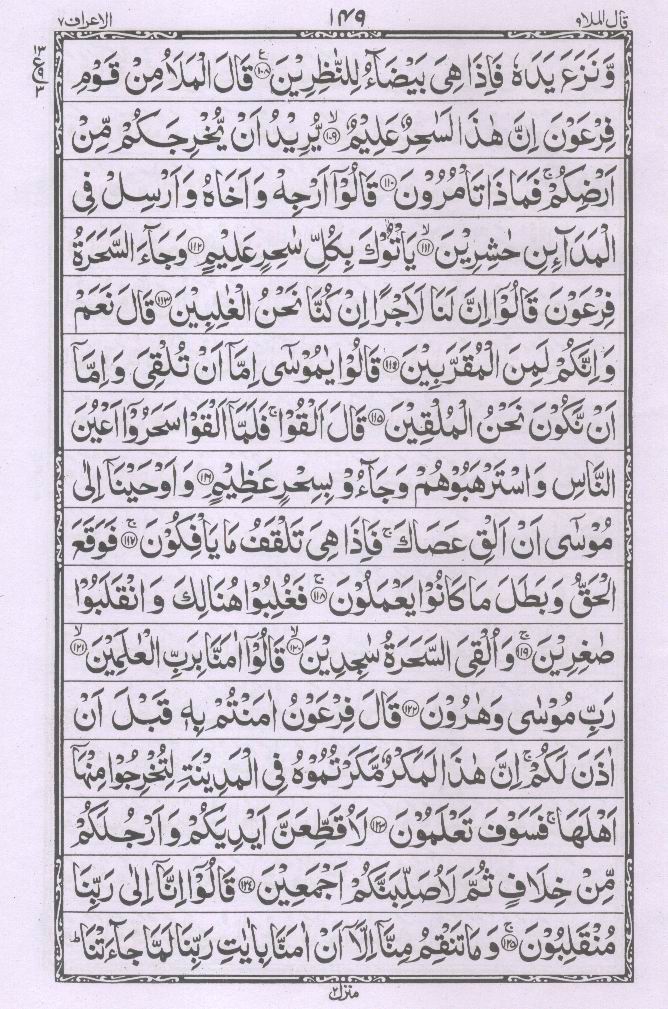 قال الملا ۹
۱۴۹
الاعراف ۷
وَّنَزَعَ يَدَهٗ فَاِذَا هِىَ بَيْضَآءُ لِلنّٰظِرِيْنَ ۱۰۸ ع قَالَ الْمَلَاُ مِنْ قَوْمِ
۱۳
ع
۳
فِرْعَوْنَ اِنَّ هٰذَا لَسٰحِرٌ عَلِيْمٌ ۱۰۹ۙ يُّرِيْدُ اَنْ يُّخْرِجَكُمْ مِّنْ
اَرْضِكُمْ ۚ فَمَاذَا تَاْمُرُوْنَ ۱۱۰ قَالُوْٓا اَرْجِهْ وَاَخَاهُ وَاَرْسِلْ فِى
الْمَدَآئِنِ حٰشِرِيْنَ ۱۱۱ۙ يَاْتُوْكَ بِكُلِّ سٰحِرٍ عَلِيْمٍ ۱۱۲ وَجَآءَ السَّحَرَةُ
فِرْعَوْنَ قَالُوْٓا اِنَّ لَنَا لَاَجْرًا اِنْ كُنَّا نَحْنُ الْغٰلِبِيْنَ ۱۱۳ قَالَ نَعَمْ
وَاِنَّكُمْ لَمِنَ الْمُقَرَّبِيْنَ ۱۱۴ قَالُوْا يٰمُوْسٰٓى اِمَّآ اَنْ تُلْقِىَ وَاِمَّآ
اَنْ نَّكُوْنَ نَحْنُ الْمُلْقِيْنَ ۱۱۵ قَالَ اَلْقُوْا ۚ فَلَمَّآ اَلْقَوْا سَحَرُوْٓا اَعْيُنَ
النَّاسِ وَاسْتَرْهَبُوْهُمْ وَجَآءُوْ بِسِحْرٍ عَظِيْمٍ ۱۱۶ وَاَوْحَيْنَآ اِلٰى
مُوْسٰٓى اَنْ اَلْقِ عَصَاكَ ۚ فَاِذَا هِىَ تَلْقَفُ مَا يَاْفِكُوْنَ ۱۱۷ۚ فَوَقَعَ
الْحَقُّ وَبَطَلَ مَا كَانُوْا يَعْمَلُوْنَ ۱۱۸ۚ فَغُلِبُوْا هُنَالِكَ وَانْقَلَبُوْا
صٰغِرِيْنَ ۱۱۹ۚ وَاُلْقِىَ السَّحَرَةُ سٰجِدِيْنَ ۱۲۰ۙ قَالُوْٓا اٰمَنَّا بِرَبِّ الْعٰلَمِيْنَ ۱۲۱ۙ
رَبِّ مُوْسٰى وَهٰرُوْنَ ۱۲۲ قَالَ فِرْعَوْنُ اٰمَنْتُمْ بِهٖ قَبْلَ اَنْ
اٰذَنَ لَكُمْ ۚ اِنَّ هٰذَا لَمَكْرٌ مَّكَرْتُمُوْهُ فِى الْمَدِيْنَةِ لِتُخْرِجُوْا مِنْهَآ
اَهْلَهَا ۚ فَسَوْفَ تَعْلَمُوْنَ ۱۲۳ لَاُقَطِّعَنَّ اَيْدِيَكُمْ وَاَرْجُلَكُمْ
مِّنْ خِلَافٍ ثُمَّ لَاُصَلِّبَنَّكُمْ اَجْمَعِيْنَ ۱۲۴ قَالُوْٓا اِنَّآ اِلٰى رَبِّنَا
مُنْقَلِبُوْنَ ۱۲۵ۚ وَمَا تَنْقِمُ مِنَّآ اِلَّآ اَنْ اٰمَنَّا بِاٰيٰتِ رَبِّنَا لَمَّا جَآءَتْنَا ؕ
منزل ۲